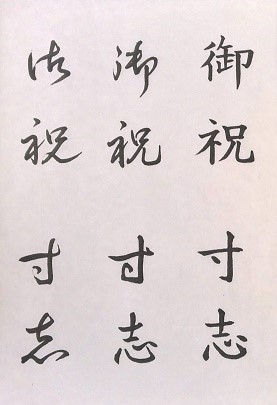 御祝
寸志
御祝
寸志
御祝
寸志